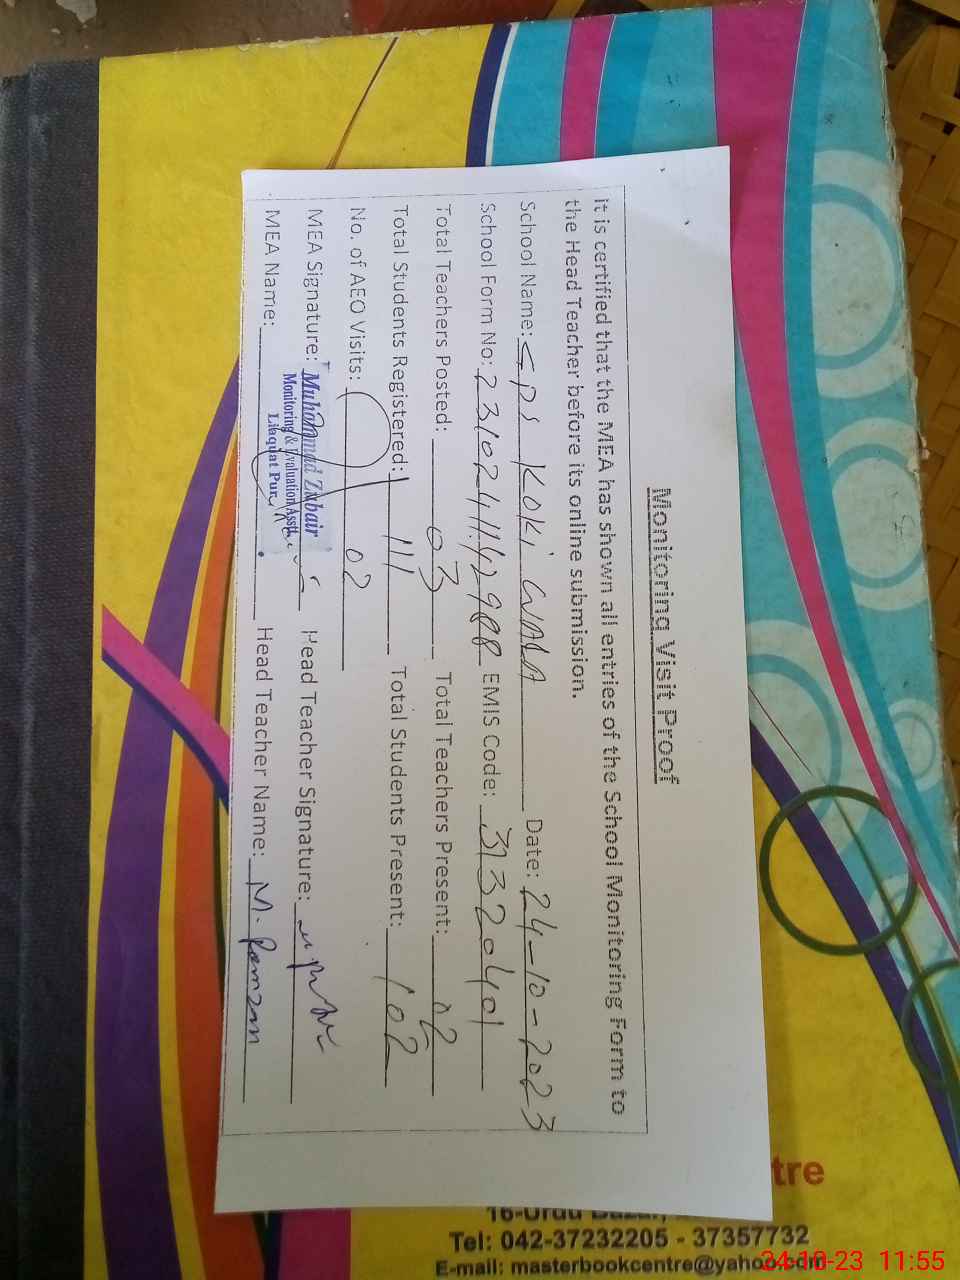 Monitoring Visit Proof
It is certified that the MEA has shown all entries of the School Monitoring Form to
the Head Teacher before its online submission.
School Name: GPS KOKI WALA Date: 24-10-2023
School Form No: EMIS Code: 31320401
Total Teachers Posted: 03 Total Teachers Present: 02
Total Students Registered: 111 Total Students Present: 102
No. of AEO Visits: 02
MEA Signature: Muhammad Zubair Head Teacher Signature:
Monitoring & Evaluation Asstt
Liaquat Pur.
MEA Name: Head Teacher Name: M. Ramzan
tre
16-Urdu Bazar,
Tel: 042-37232205 - 37357732
E-mail: masterbookcentre@yahoo.com
24-10-23 11:55